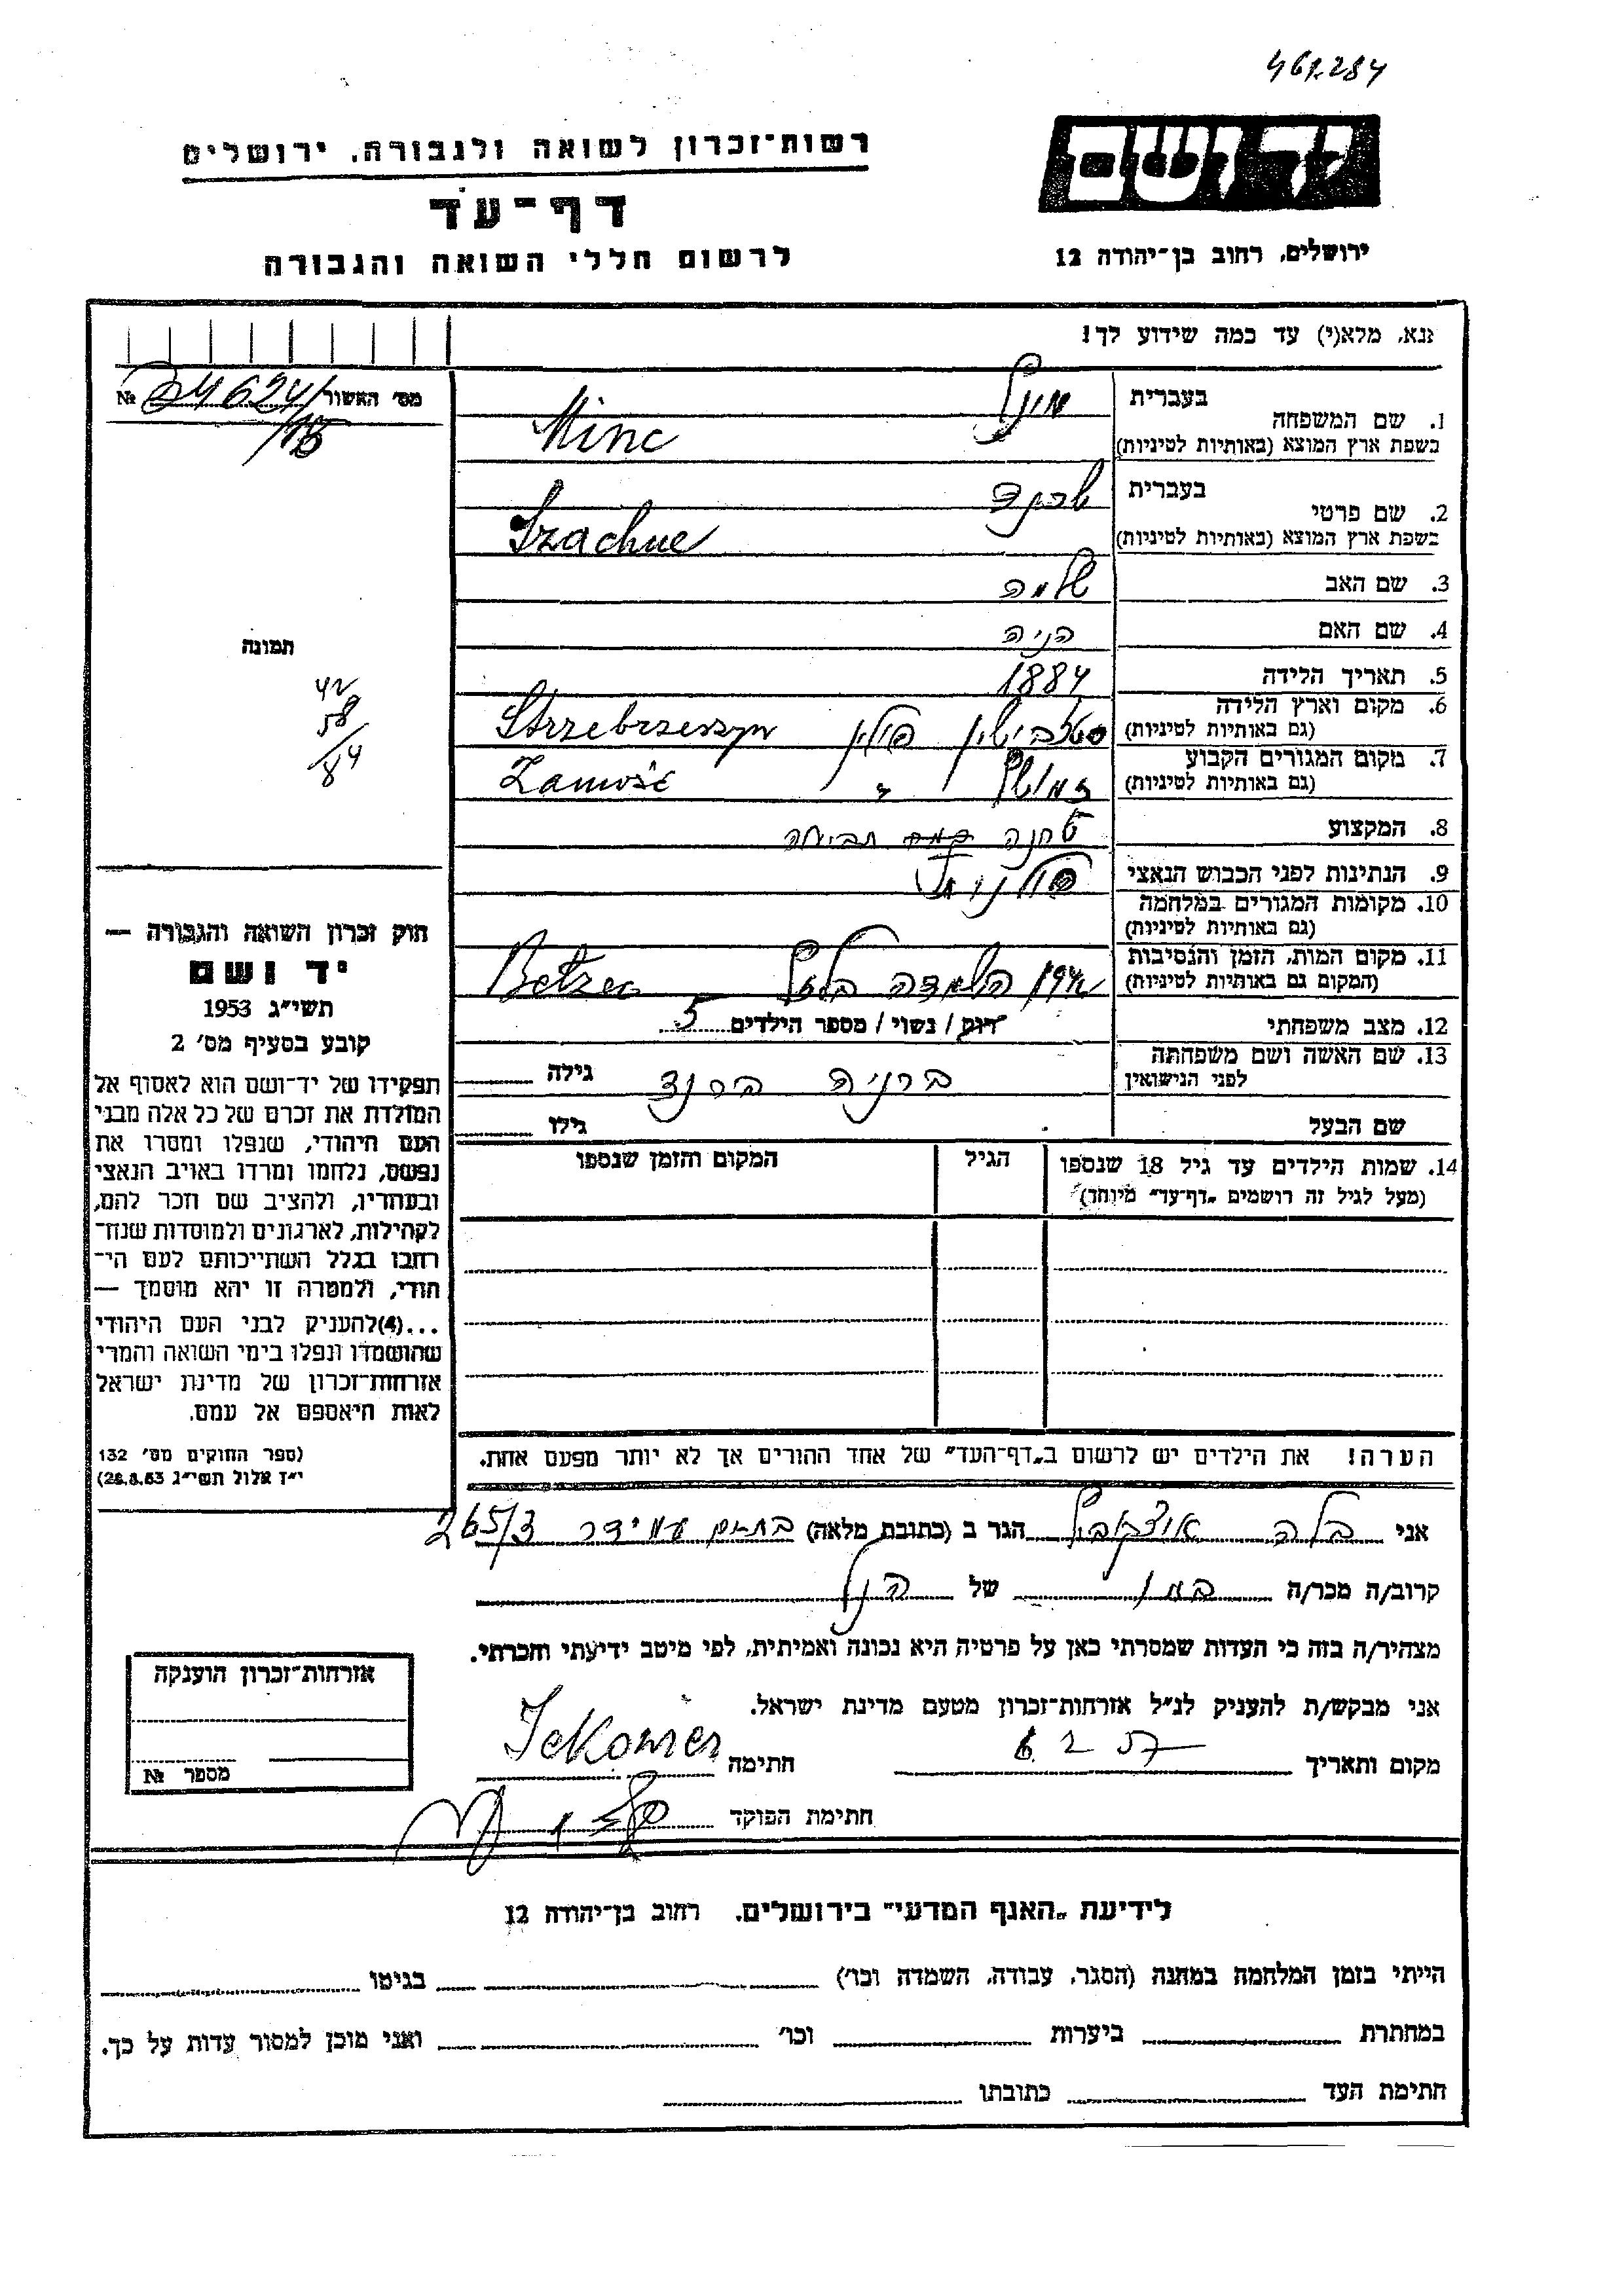 461284
רשות־זכרון לשואה ולגבורה, ירושלים
דף־עד
לרשום חללי השואה והגבורה
יד ושם
ירושלים, רחוב בן־יהודה 12
נא, מלא(י) עד כמה שידוע לך!
מס׳ האשור № 24624/
15
1. שם המשפחה בעברית מינץ
בשפת ארץ המוצא (באותיות לטיניות) Minc
2. שם פרטי בעברית שכנה
בשפת ארץ המוצא (באותיות לטיניות) Szachne
3. שם האב שלמה
4. שם האם הניה
5. תאריך הלידה 1884
6. מקום וארץ הלידה פולין Strzebrzeszyn
(גם באותיות לטיניות)
7. מקום המגורים הקבוע זמושץ " Zamość
(גם באותיות לטיניות)
8. המקצוע טחנה
9. הנתינות לפני הכבוש הנאצי פולנית
10. מקומות המגורים במלחמה
(גם באותיות לטיניות)
11. מקום המות, הזמן והנסיבות מחנה השמדה בלזץ Betzec
(המקום גם באותיות לטיניות)
12. מצב משפחתי רווק / נשוי / מספר הילדים 5
13. שם האשה ושם משפחתה ברניה ברנד גילה
לפני הנישואין
שם הבעל גילו
14. שמות הילדים עד גיל 18 שנספו הגיל המקום והזמן שנספו
(מעל לגיל זה רושמים „דף־עד״ מיוחד)
הערה! את הילדים יש לרשום ב„דף־העד״ של אחד ההורים אך לא יותר מפעם אחת.
תמונה
42
58
84
חוק זכרון השואה והגבורה —
יד ושם
תשי״ג 1953
קובע בסעיף מס׳ 2
תפקידו של יד־ושם הוא לאסוף אל
המולדת את זכרם של כל אלה מבני
העם היהודי, שנפלו ומסרו את
נפשם, נלחמו ומרדו באויב הנאצי
ובעוזריו, ולהציב שם וזכר להם,
לקהילות, לארגונים ולמוסדות שנח־
רבו בגלל השתייכותם לעם הי־
הודי, ולמטרה זו יהא מוסמך —
...(4) להעניק לבני העם היהודי
שהושמדו ונפלו בימי השואה והמרי
אזרחות־זכרון של מדינת ישראל
לאות היאספם אל עמם.
(ספר החוקים מס׳ 132
י״ז אלול תשי״ג 28.8.53)
אני בלה הגר ב (כתובת מלאה) בת ים עמידר 265/3
קרוב/ה מכר/ה בת של הנ״ל
מצהיר/ה בזה כי העדות שמסרתי כאן על פרטיה היא נכונה ואמיתית, לפי מיטב ידיעתי והכרתי.
אני מבקש/ת להעניק לנ״ל אזרחות־זכרון מטעם מדינת ישראל.
מקום ותאריך 6 2 57 חתימה
חתימת הפוקד
אזרחות־זכרון הוענקה
מספר №
לידיעת „האגף המדעי״ בירושלים. רחוב בן־יהודה 12
הייתי בזמן המלחמה במחנה (הסגר, עבודה, השמדה וכו׳) בגיטו
במחתרת ביערות וכו׳ ואני מוכן למסור עדות על כך.
חתימת העד כתובתו